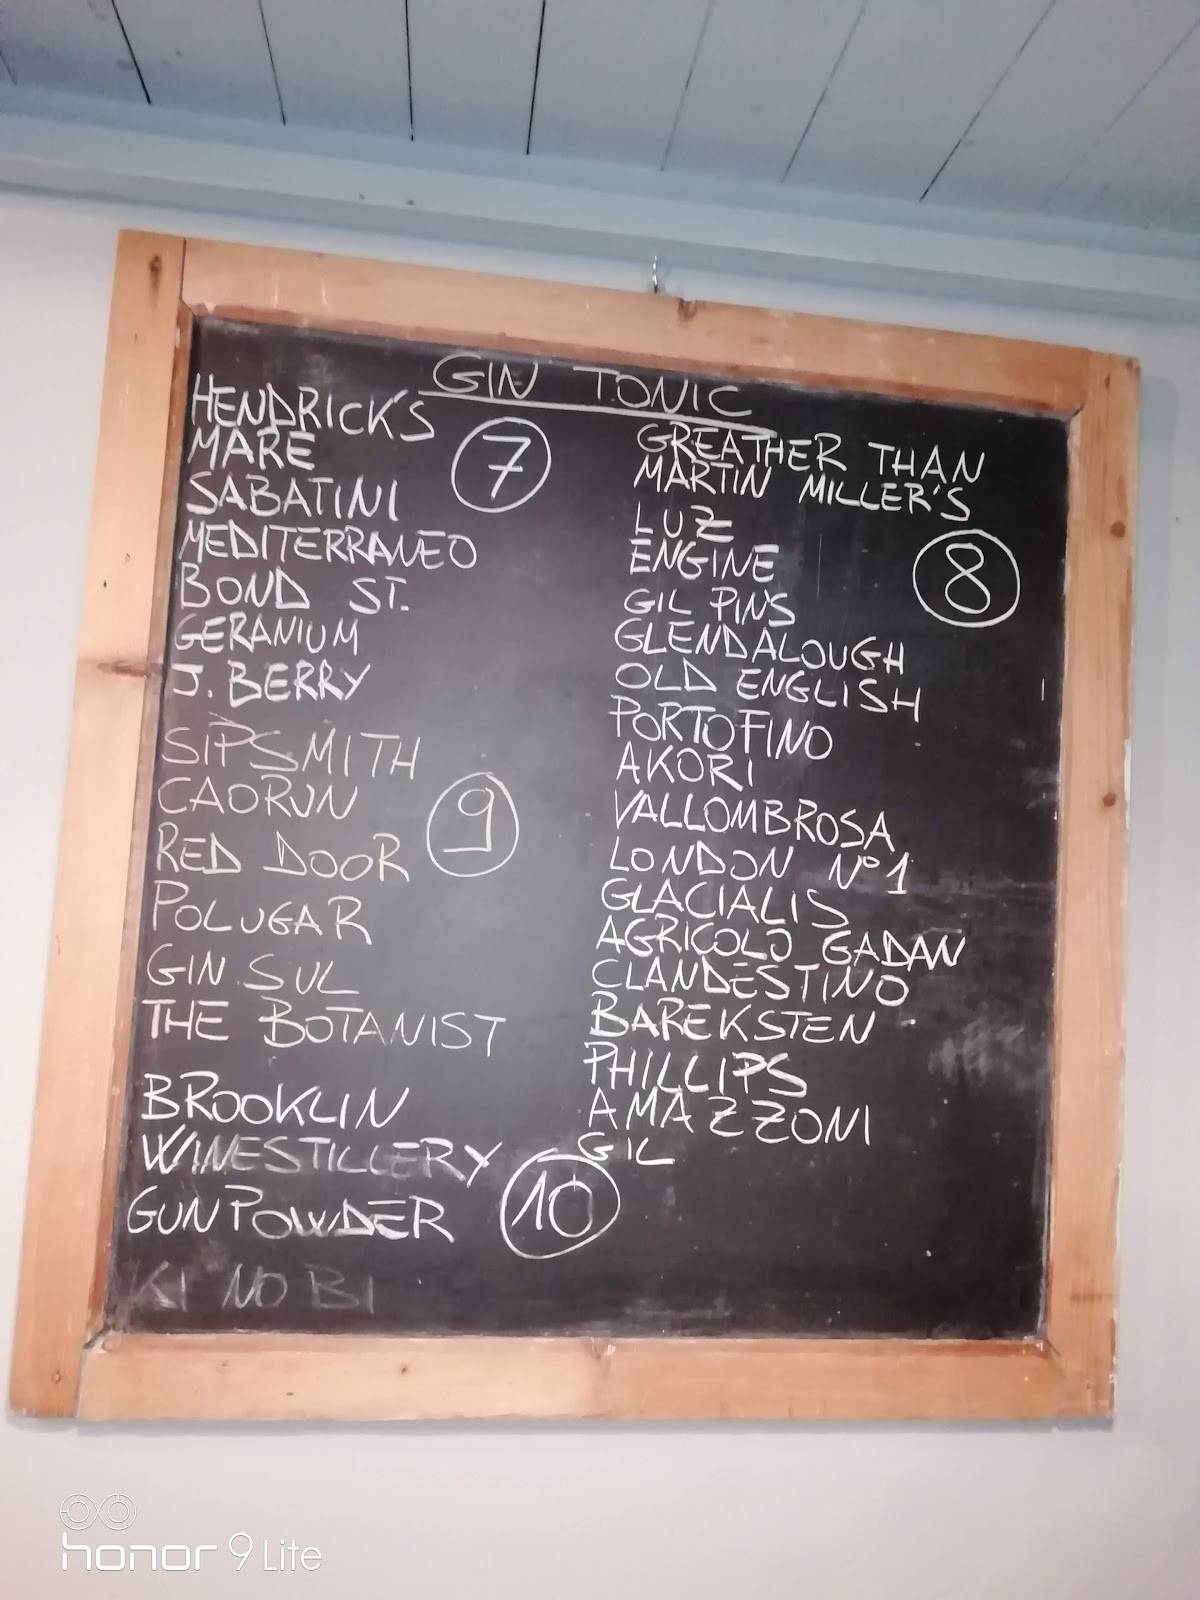 GIN TONIC
HENDRICK'S
MARE
7
SABATINI
MEDITERRANEO
BOND ST.
GERANIUM
J. BERRY
SIPSMITH
CAORUN
9
RED DOOR
POLUGAR
GIN SUL
THE BOTANIST
BROOKLIN
WINESTILLERY
10
GUNPOWDER
KI NO BI
GREATHER THAN
MARTIN MILLER'S
LUZ
ENGINE
8
GIL PINS
GLENDALOUGH
OLD ENGLISH
PORTOFINO
AKORI
VALLOMBROSA
LONDON N°1
GLACIALIS
AGRICOLO GADAN
CLANDESTINO
BAREKSTEN
PHILLIPS
AMAZZONI
GIL
honor 9 Lite